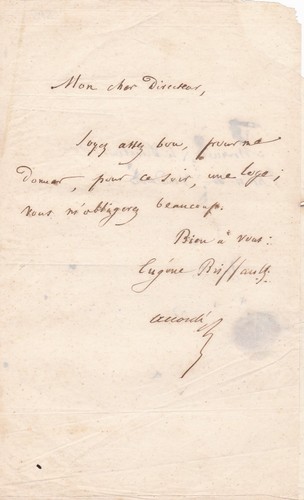 Mon cher Directeur,
Soyez assez bon, pour me
donner, pour ce soir, une loge;
vous m'obligerez beaucoup.
Bien à vous:
Eugène Briffault.
accordé